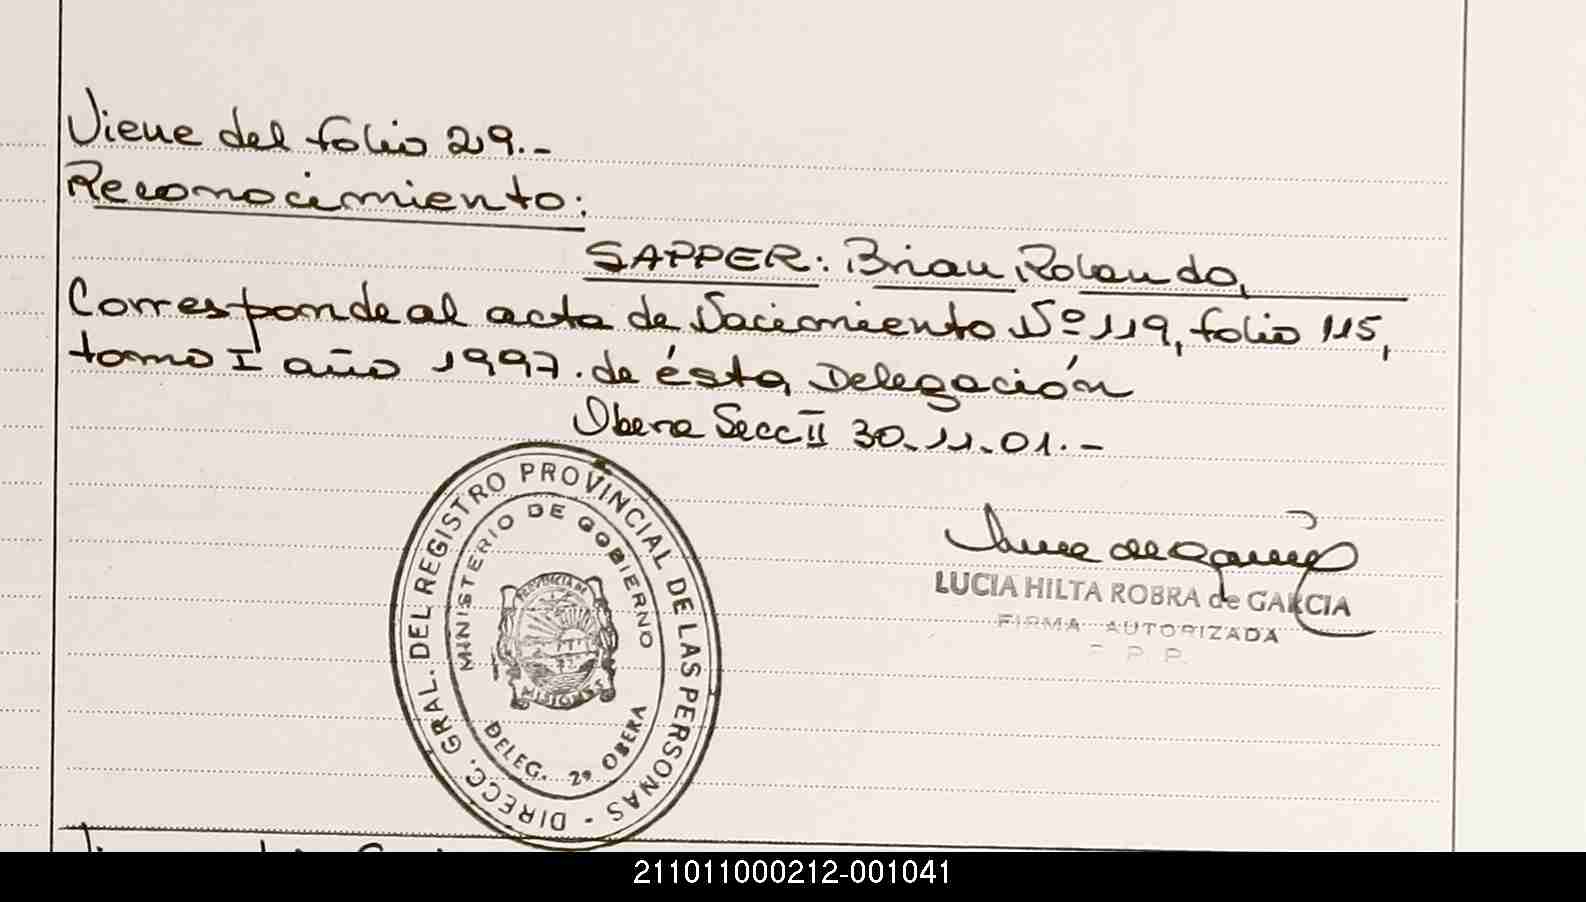 Viene del folio 29.-
Reconocimiento:
SAPPER: Brian Rolando,
Corresponde al acta de Nacimiento Nº 119, folio 115,
tomo I año 1997. de ésta Delegación
Obera Secc II 30.11.01.-
DIRECC. GRAL. DEL REGISTRO PROVINCIAL DE LAS PERSONAS -
MINISTERIO DE GOBIERNO
PROVINCIA DE
MISIONES
DELEG. 2ª OBERA
LUCIA HILTA ROBRA de GARCIA
FIRMA AUTORIZADA
211011000212-001041